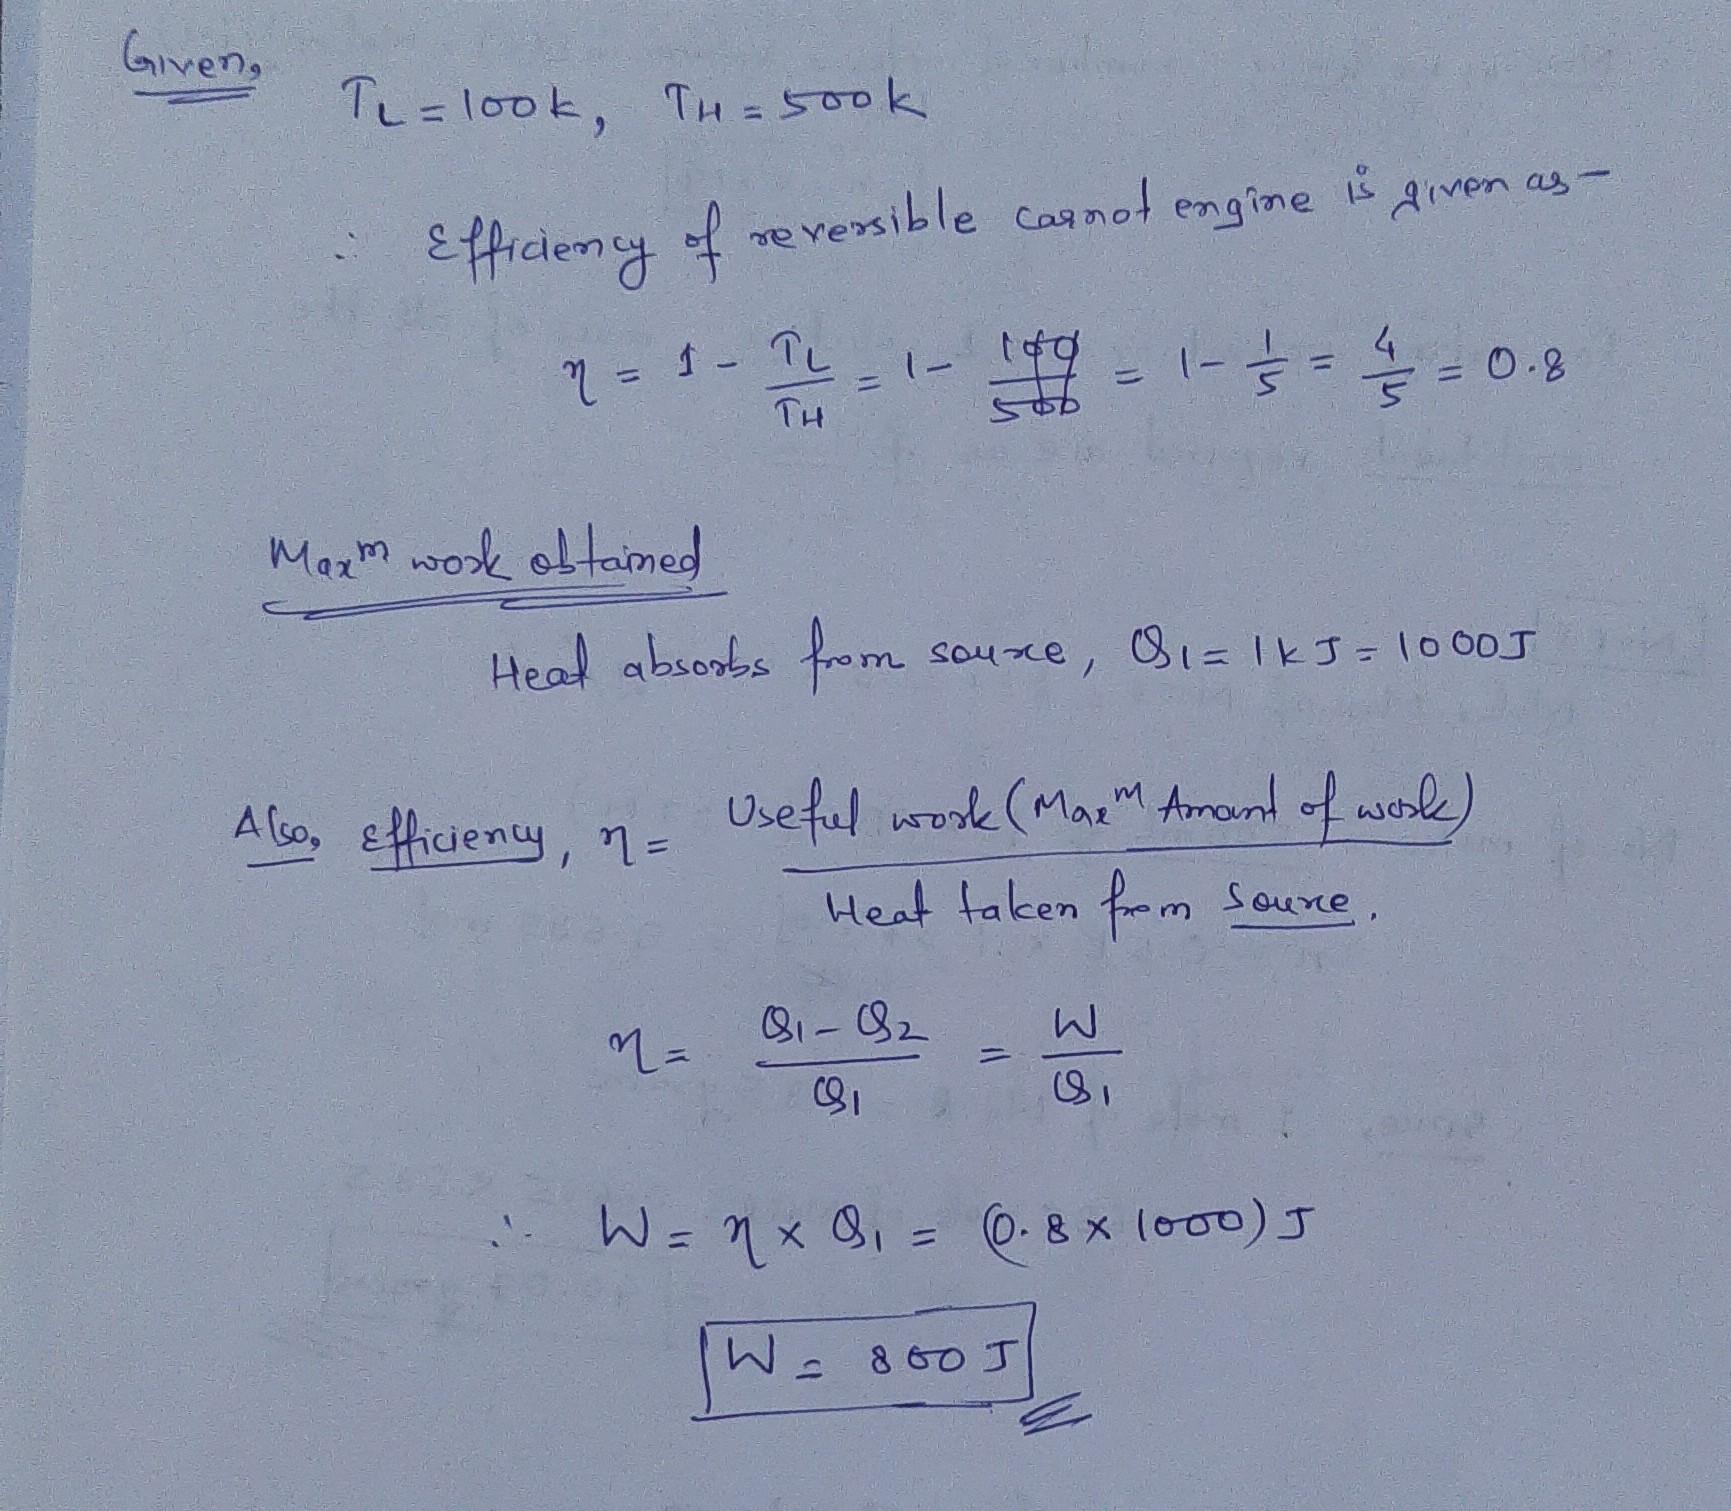 Given,
TL = 100k, TH = 500k
∴ Efficiency of reversible carnot engine is given as –
η = 1 - TL/TH = 1 - 100/500 = 1 - 1/5 = 4/5 = 0.8
Maxᵐ work obtained
Heat absorbs from source, Q1 = 1kJ = 1000J
Also, Efficiency, η = Useful work (Maxᵐ Amount of work) / Heat taken from source.
η = Q1 - Q2 / Q1 = W / Q1
∴ W = η x Q1 = (0.8 x 1000) J
W = 800 J